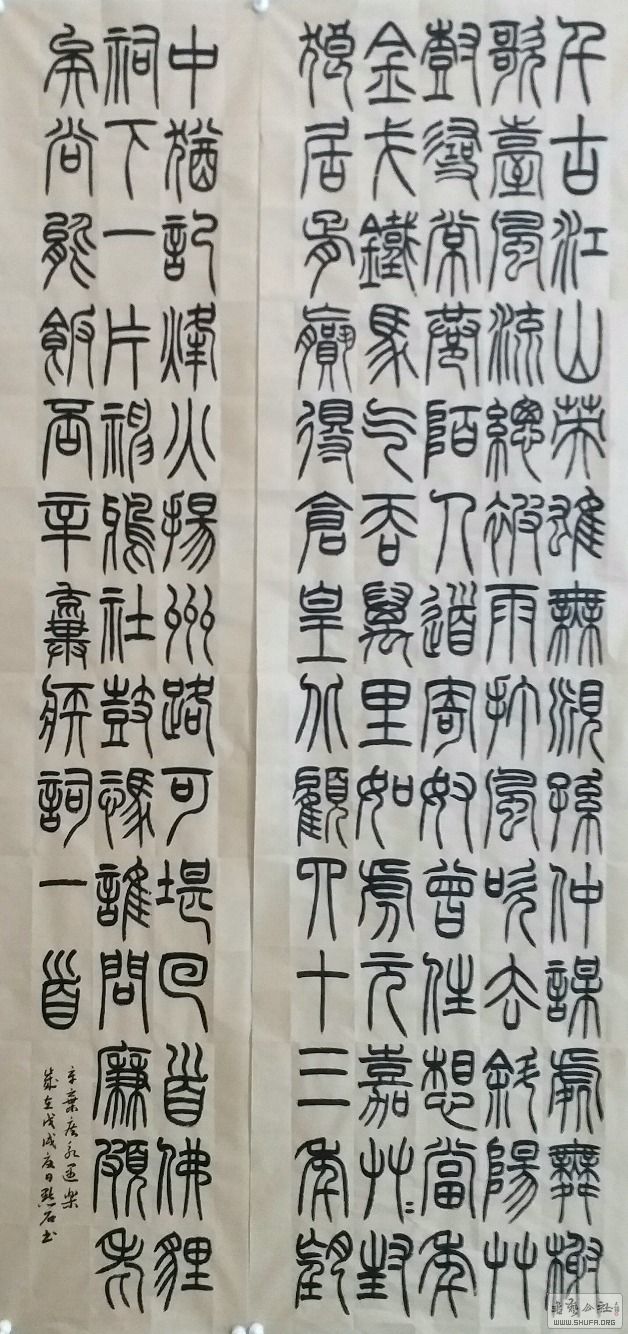 千古江山英雄無覓孫仲謀處舞榭
歌臺風流總被雨打風吹去斜陽艸
樹尋常巷陌人道寄奴曾住想當年
金戈鐵馬气吞萬里如虎元嘉艸艸封
狼居胥贏得倉皇北顧四十三年望
中猶記烽火揚州路可堪回首佛貍
祠下一片神鴉社鼓憑誰問廉頗老
矣尚能飯否辛棄疾詞一首
辛棄疾永遇樂
歲在戊戌夏日石书
书艺公社
WWW.SHUFA.ORG